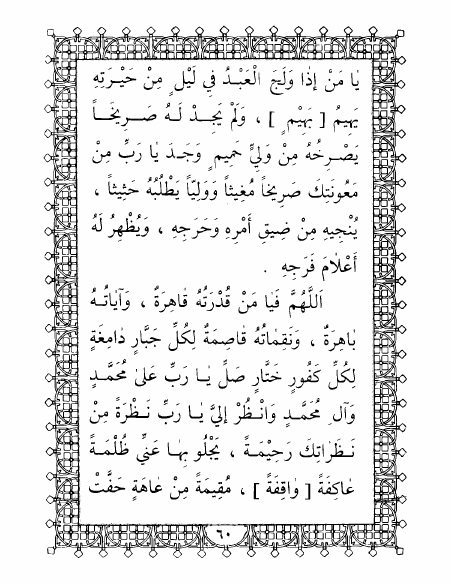 يٰا مَنْ إذٰا وَلَجَ الْعَبْدُ فِي لَيْلٍ مِنْ حَيْـرَتِهِ
يَهِيمُ [ بَهِيْمٍ ] ، وَلَمْ يَجِـدْ لَـهُ صَـرِيخَـاً
يَصْـرِخُهُ مِنْ وَلِيٍّ حَمِيمٍ وَجَـدَ يٰا رَبِّ مِنْ
مَعُونَتِكَ صَرِيخاً مُغِيثاً وَوَلِيّاً يَطْلُبُهُ حَثِيثاً ،
يُنْجِيهِ مِنْ ضِيقِ أَمْرِهِ وَحَرَجِهِ ، وَيُظْهِرُ لَهُ
أَعْلٰامَ فَرَجِهِ .
اَللَّهُمَّ فَيٰا مَنْ قُدْرَتُهُ قٰاهِرَةٌ ، وَآيٰاتُـهُ
بٰاهِرَةٌ ، وَنَقِمٰاتُهُ قٰاصِمَةٌ لِكُلِّ جَبَّارٍ دٰامِغَةٌ
لِكُلِّ كَفُورٍ خَتَّارٍ صَلِّ يٰـا رَبِّ عَلىٰ مُحَمَّـدٍ
وَآلِ مُحَمَّـدٍ وَانْظُرْ إِليَّ يٰـا رَبِّ نَـظْرَةً مِنْ
نَـظَرٰاتِكَ رَحِيْمَـةً ، يَجْلُو بِهـا عَنِّي ظُلْمَـةً
عٰاكِفَةً [ وٰاقِفَةً ] ، مُقِيمَةً مِنْ عٰاهَةٍ جَفَّتْ
٦٠